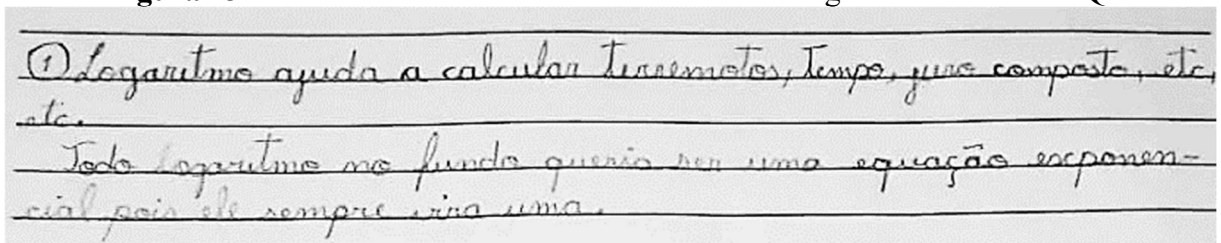 ① Logaritmo ajuda a calcular Terremotos, Tempo, juro composto, etc,
etc.
Todo logaritmo no fundo queria ser uma equação exponen-
cial pois ele sempre vira uma.